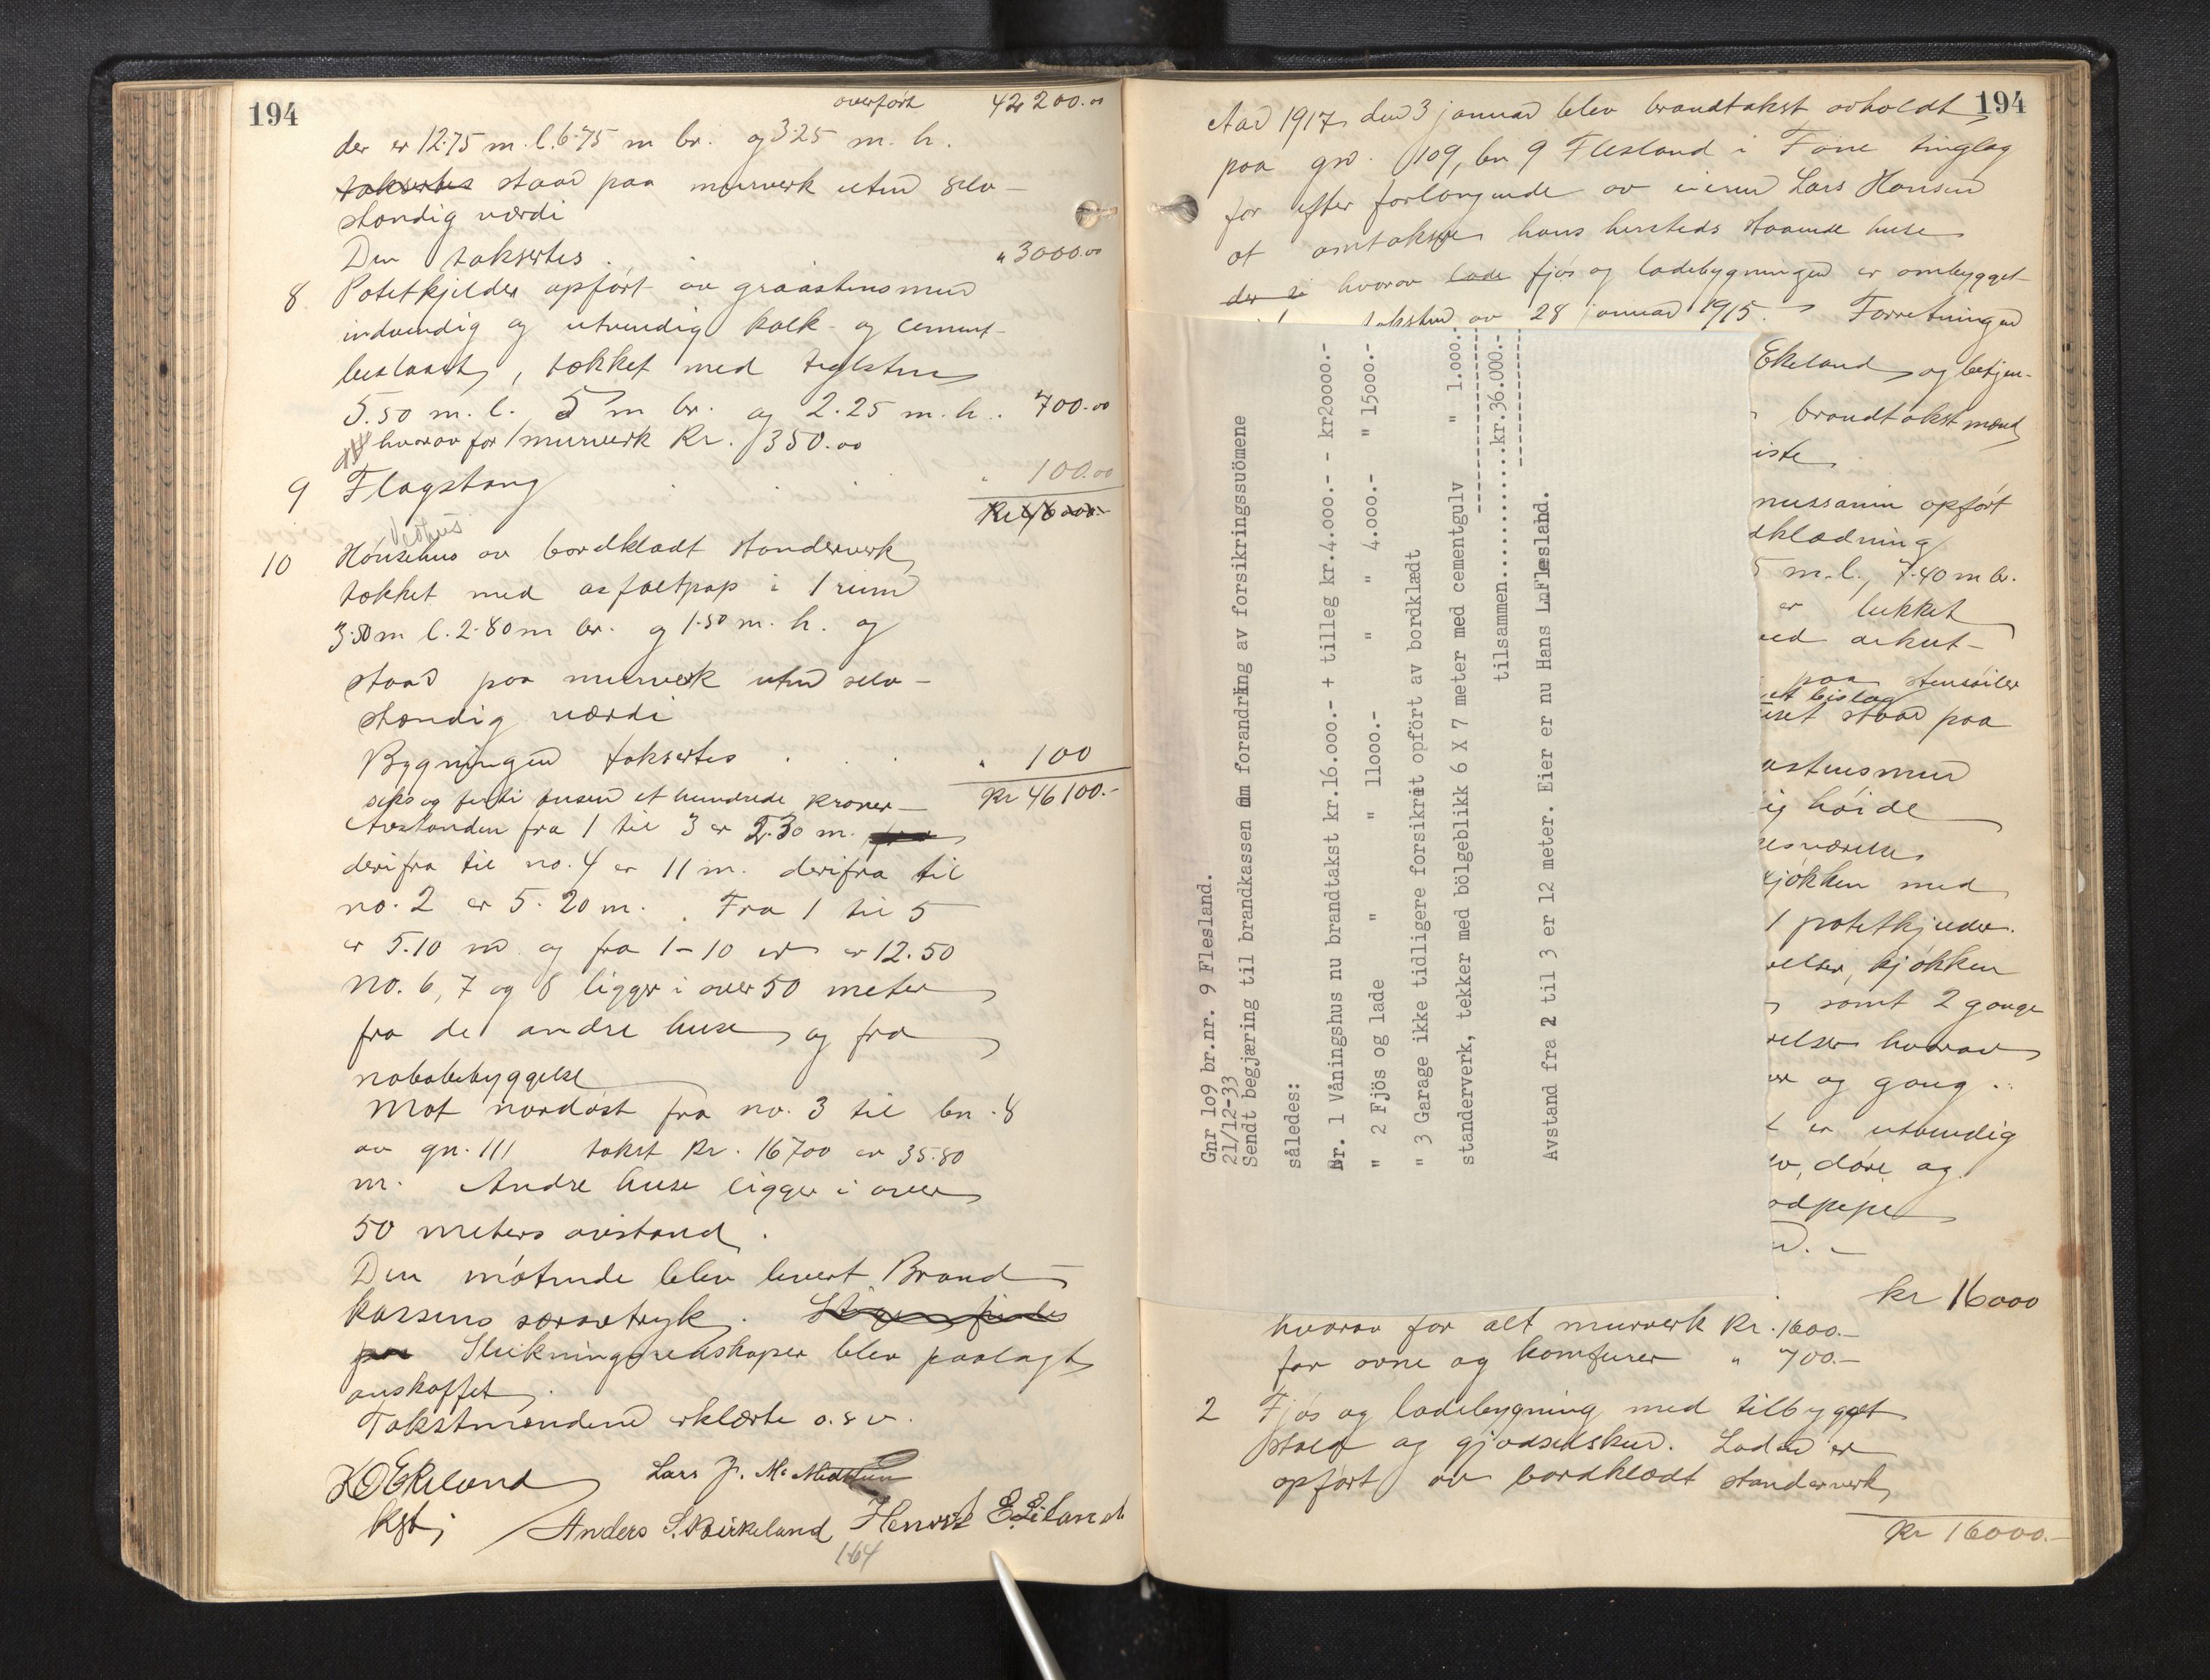 194
overført 42 200.00
der er 12.75 m. l. 6.75 m br. og 3.25 m. h.
takseres staar paa murverk uten selv-
stændig værdi
Den takseres . " 3000.00
8 Potetkjelder opført av graastensmur
indvendig og utvendig kalk- og cement-
beslaaet, tækket med teglsten
5.50 m. l. 5 m br. og 2.25 m. h. 700.00
hvorav for murverk Kr. 350.00
9 Flagstang " 100.00
Kr 46 000.-
10 Hønsehus av bordklædt stenderverk
tækket med asfaltpap i 1 rum
3.50 m l. 2.80 m br. og 1.50 m. h. og
staar paa murverk uten selv-
stændig værdi
Bygningen takseres . . . " 100
seks og førti tusen et hundrede kroner - Kr 46 100.-
Avstanden fra 1 til 3 er 2.30 m.
derifra til no. 4 er 11 m. derifra til
no. 2 er 5.20 m. Fra 1 til 5
er 5.10 m og fra 1-10 er 12.50
No. 6, 7 og 8 ligger i over 50 meter
fra de andre huse og fra
nabobebyggelse
Mot nordøst fra no. 3 til bn. 8
av gn. 111 takst Kr. 16700 er 35.80
m. Andre huse ligger i over
50 meters avstand.
Den møtende blev levert Brand-
kassens særavtryk.
Slukningsredskaper blev paalagt
anskaffet.
Takstmændene erklærte o.s.v.
K O Ekeland Lars J.
Anders S. Birkeland Henrik E. Liland
164
194
Aar 1917 den 3 januar blev brandtakst avholdt
paa gn. 109, bn 9 Flesland i Fane tinglag
for efter forlangende av eieren Lars Hansen
at omtaksere hans hersteds staaende huse
hvorav lade fjøs og ladebygningen er ombygget
taksten av 28 januar 1915. Forretningen
Gnr 1o9 br.nr. 9 Flesland.
21/12-33
Sendt begjæring til brandkassen om forandring av forsikringssuömene
således:
Nr. 1 Våningshus nu brandtakst kr.16.ooo.- + tilleg kr.4.ooo.- - kr2oooo.-
" 2 Fjös og lade " " 11ooo.- " " 4.ooo.- " 15ooo.-
" 3 Garage ikke tidligere forsikret opfört av bordklædt
standerverk, tekker med bölgeblikk 6 X 7 meter med cementgulv " 1.ooo.-
tilsammen............kr.36.ooo.-
Avstand fra 2 til 3 er 12 meter. Eier er nu Hans L. Flesland.
Ekeland og betjen-
brandtakstmænd
iste
opført
dklædning
5 m. l., 7.40 m br.
er lukket
ed arkut-
paa stensøiler
et bislag
uset staar paa
astensmur
ig høide
esværelse
kjøkken med
1 potetkjelder.
elser, kjøkken
samt 2 gange
elser hvorav
og gang.
t er utvendig
døre og
ødpipe
kr 16000
hvorav for alt murverk Kr. 1600.-
for ovne og komfurer " 700.-
2 Fjøs og ladebygning med tilbygget
stald og gjødselskur. Laden er
opført av bordklædt standerverk
Kr 16000.-